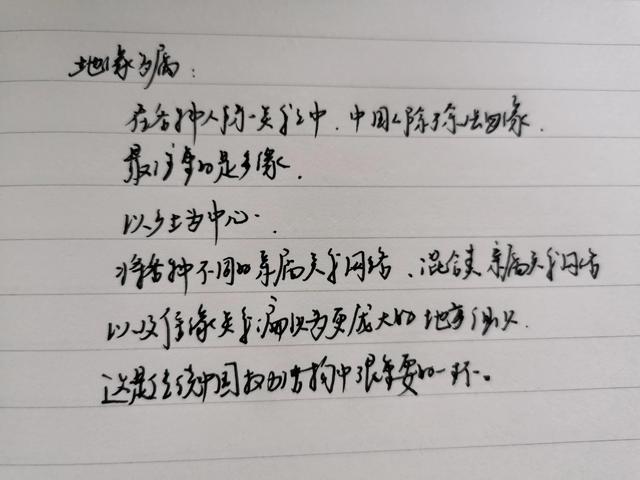 地缘多属：
在各种人际关系之中，中国人除了余出因缘，
最注重的是乡缘，
以乡土为中心，
将各种不同的亲属关系网络、混合类亲属关系网络
以及信缘关系，编织为更庞大的地方组织，
这是传统中国权力结构中很重要的一环。